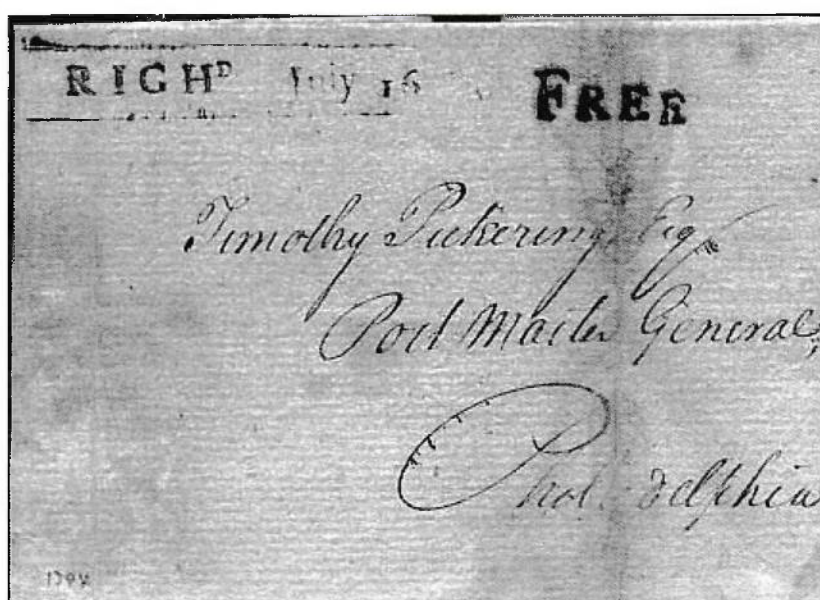 RICHᴰ July 16 FREE
Timothy Pickering Esqr
Post Master General,
Philadelphia
1794